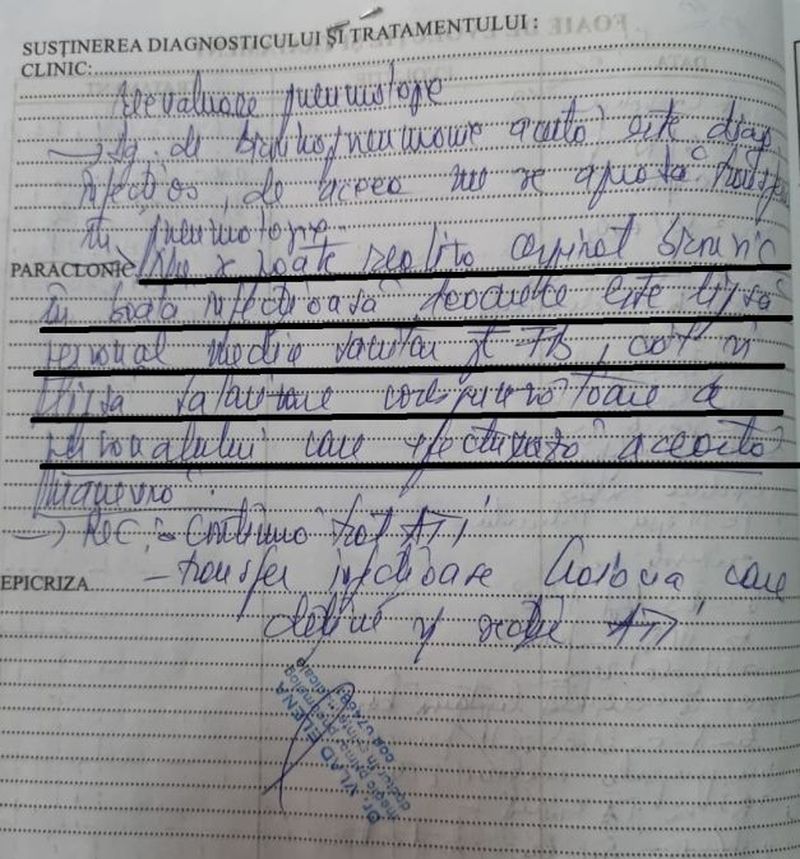 SUSȚINEREA DIAGNOSTICULUI ȘI TRATAMENTULUI :
CLINIC:
Reevaluare pneumologie
→ Dg. de bronhopneumonie acută este diag
infecțios, de aceea nu se aprobă transfer
în pneumologie.
PARACLONIC Nu se poate realiza aspirat bronșic
în boala infecțioasă deoarece este lipsă
personal medic sanitar și TB, cât și
lipsa salarizare corespunzătoare a
personalului care efectuează această
manevră.
→ REC: - Continuă trat ATI
EPICRIZA - transfer infecțioase Craiova, care
deține și secție ATI
Dr. VLAD ELENA
medic primar pneumolog
doctor în științe medicale